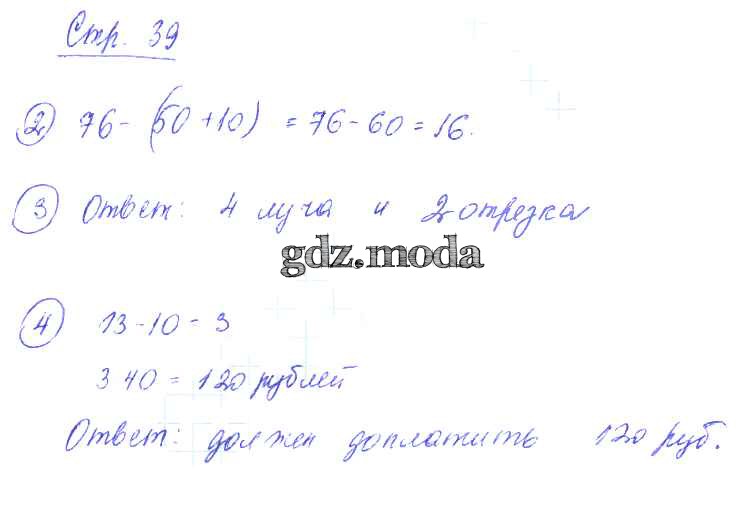 Стр. 39
2 76 - (50 + 10) = 76 - 60 = 16.
3 Ответ: 4 луча и 2 отрезка
gdz.moda
4 13 - 10 = 3
3 40 = 120 рублей
Ответ: должен доплатить 120 руб.